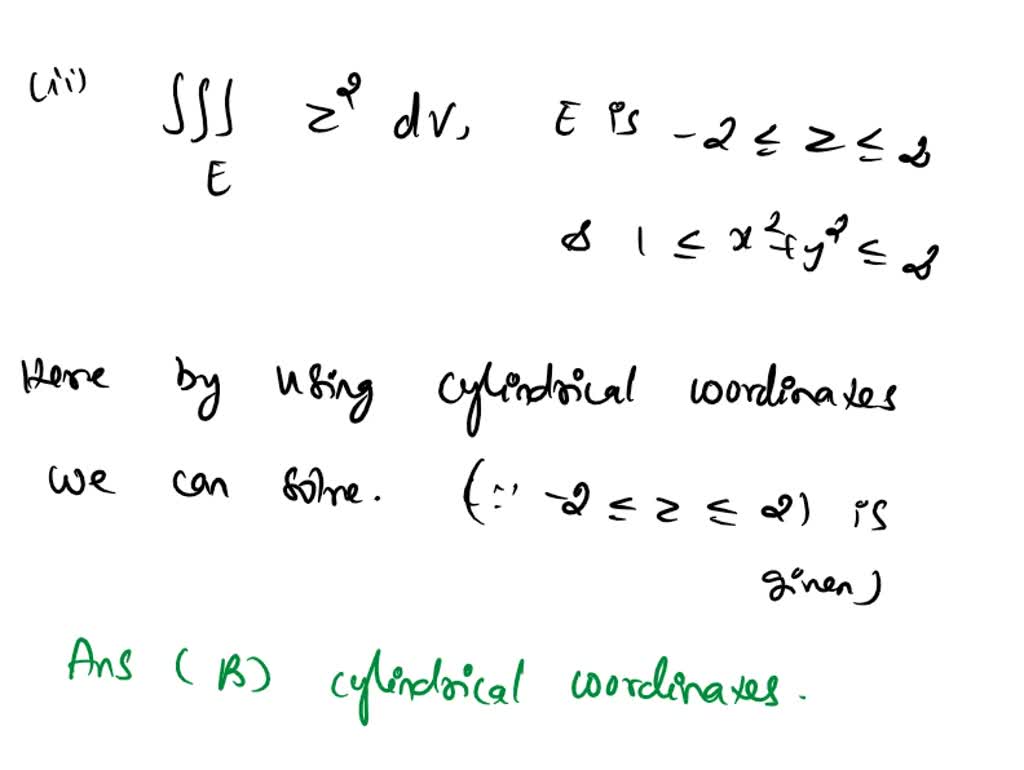 (iii) ∫∫∫ z² dv, E is -2 ≤ z ≤ 2
E
& 1 ≤ x²+y² ≤ 2
Here by using cylindrical coordinates
we can solve. (∵ -2 ≤ z ≤ 2) is
given)
Ans (B) cylindrical coordinates.